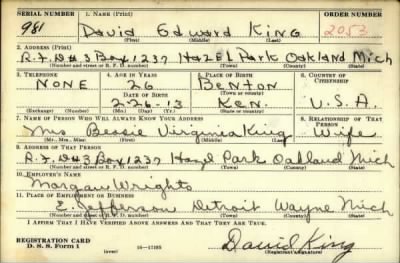 SERIAL NUMBER 1. NAME (Print) ORDER NUMBER
981 David Edward King 2053
(First) (Middle) (Last)
2. ADDRESS (Print)
R.F.D#3 Box 1237 Hazel Park Oakland Mich
(Number and street or R. F. D. number) (Town) (County) (State)
3. TELEPHONE 4. AGE IN YEARS 5. PLACE OF BIRTH 6. COUNTRY OF CITIZENSHIP
NONE 26 Benton
DATE OF BIRTH (Town or county)
2-26-13 Ken. U.S.A.
(Exchange) (Number) (Mo.) (Day) (Yr.) (State or country)
7. NAME OF PERSON WHO WILL ALWAYS KNOW YOUR ADDRESS 8. RELATIONSHIP OF THAT PERSON
Mrs Bessie Virginia King Wife
(Mr., Mrs., Miss) (First) (Middle) (Last)
9. ADDRESS OF THAT PERSON
R.F.D#3 Box 1237 Hazel Park Oakland Mich
(Number and street or R. F. D. number) (Town) (County) (State)
10. EMPLOYER'S NAME
Morgan Wrights
11. PLACE OF EMPLOYMENT OR BUSINESS
E. Jefferson Detroit Wayne Mich
(Number and street or R. F. D. number) (Town) (County) (State)
I AFFIRM THAT I HAVE VERIFIED ABOVE ANSWERS AND THAT THEY ARE TRUE.
REGISTRATION CARD
D. S. S. Form 1 16—17105 David King